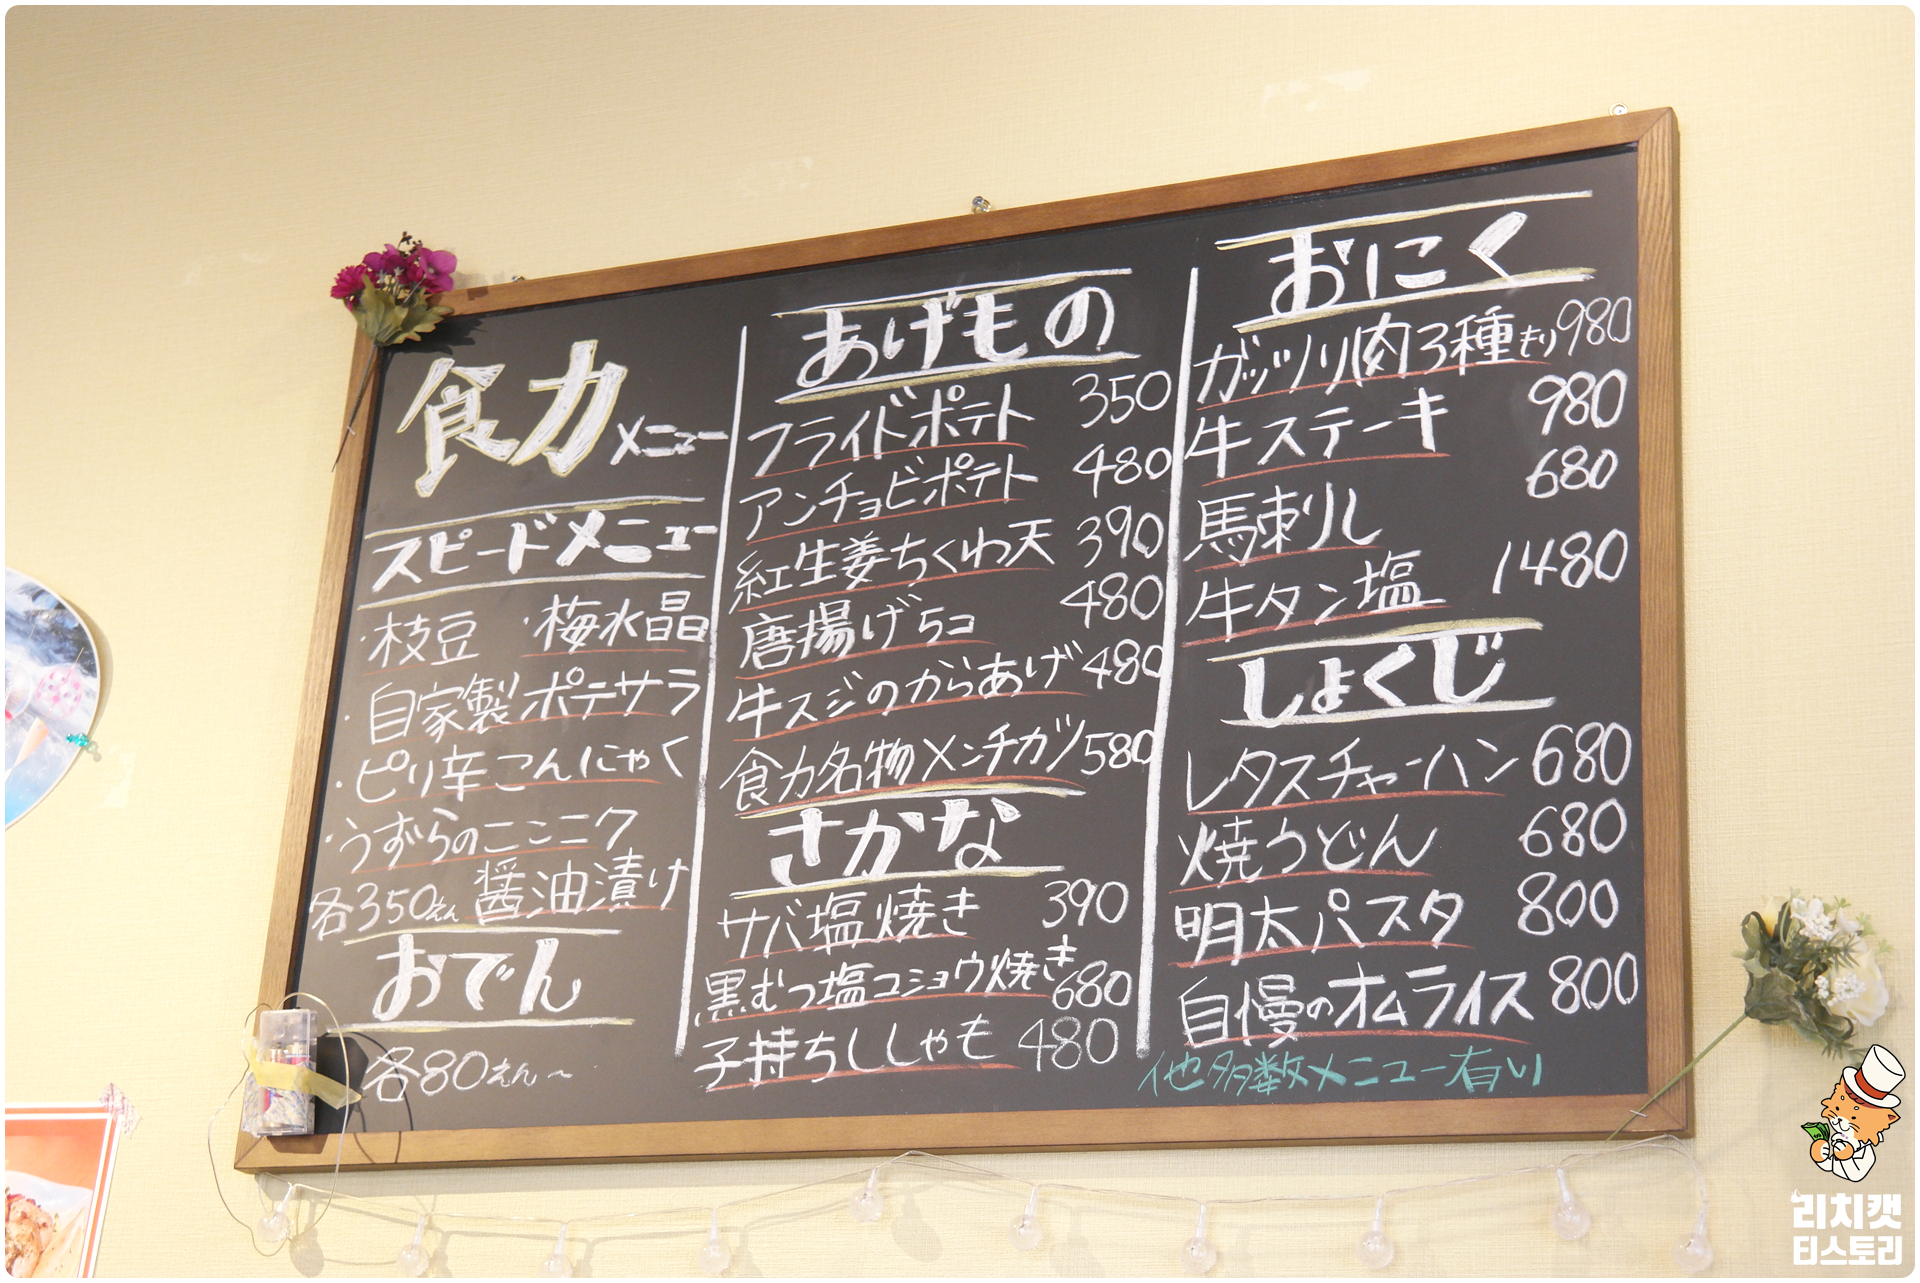 食力メニュー
スピードメニュー
・枝豆 ・梅水晶
・自家製ポテサラ
・ピリ辛こんにゃく
・うずらのニンニク
醤油漬け
各350えん
おでん
各80えん〜
あげもの
フライドポテト 350
アンチョビポテト 480
紅生姜ちくわ天 390
唐揚げ5コ 480
牛スジのからあげ 480
食力名物メンチカツ 580
さかな
サバ塩焼き 390
黒むつ塩コショウ焼き 680
子持ちししゃも 480
おにく
ガッツリ肉3種もり 980
牛ステーキ 980
馬刺し 680
牛タン塩 1480
しょくじ
レタスチャーハン 680
焼うどん 680
明太パスタ 800
自慢のオムライス 800
他多数メニュー有り
리치캣
티스토리